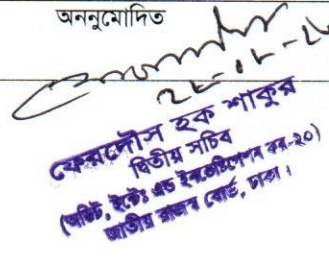 অননুমোদিত
ফেরদৌস হক শাকুর
দ্বিতীয় সচিব
(অডিট, ইন্টেঃ এন্ড ইনভেস্টিগেশন কর-২০)
জাতীয় রাজস্ব বোর্ড, ঢাকা।